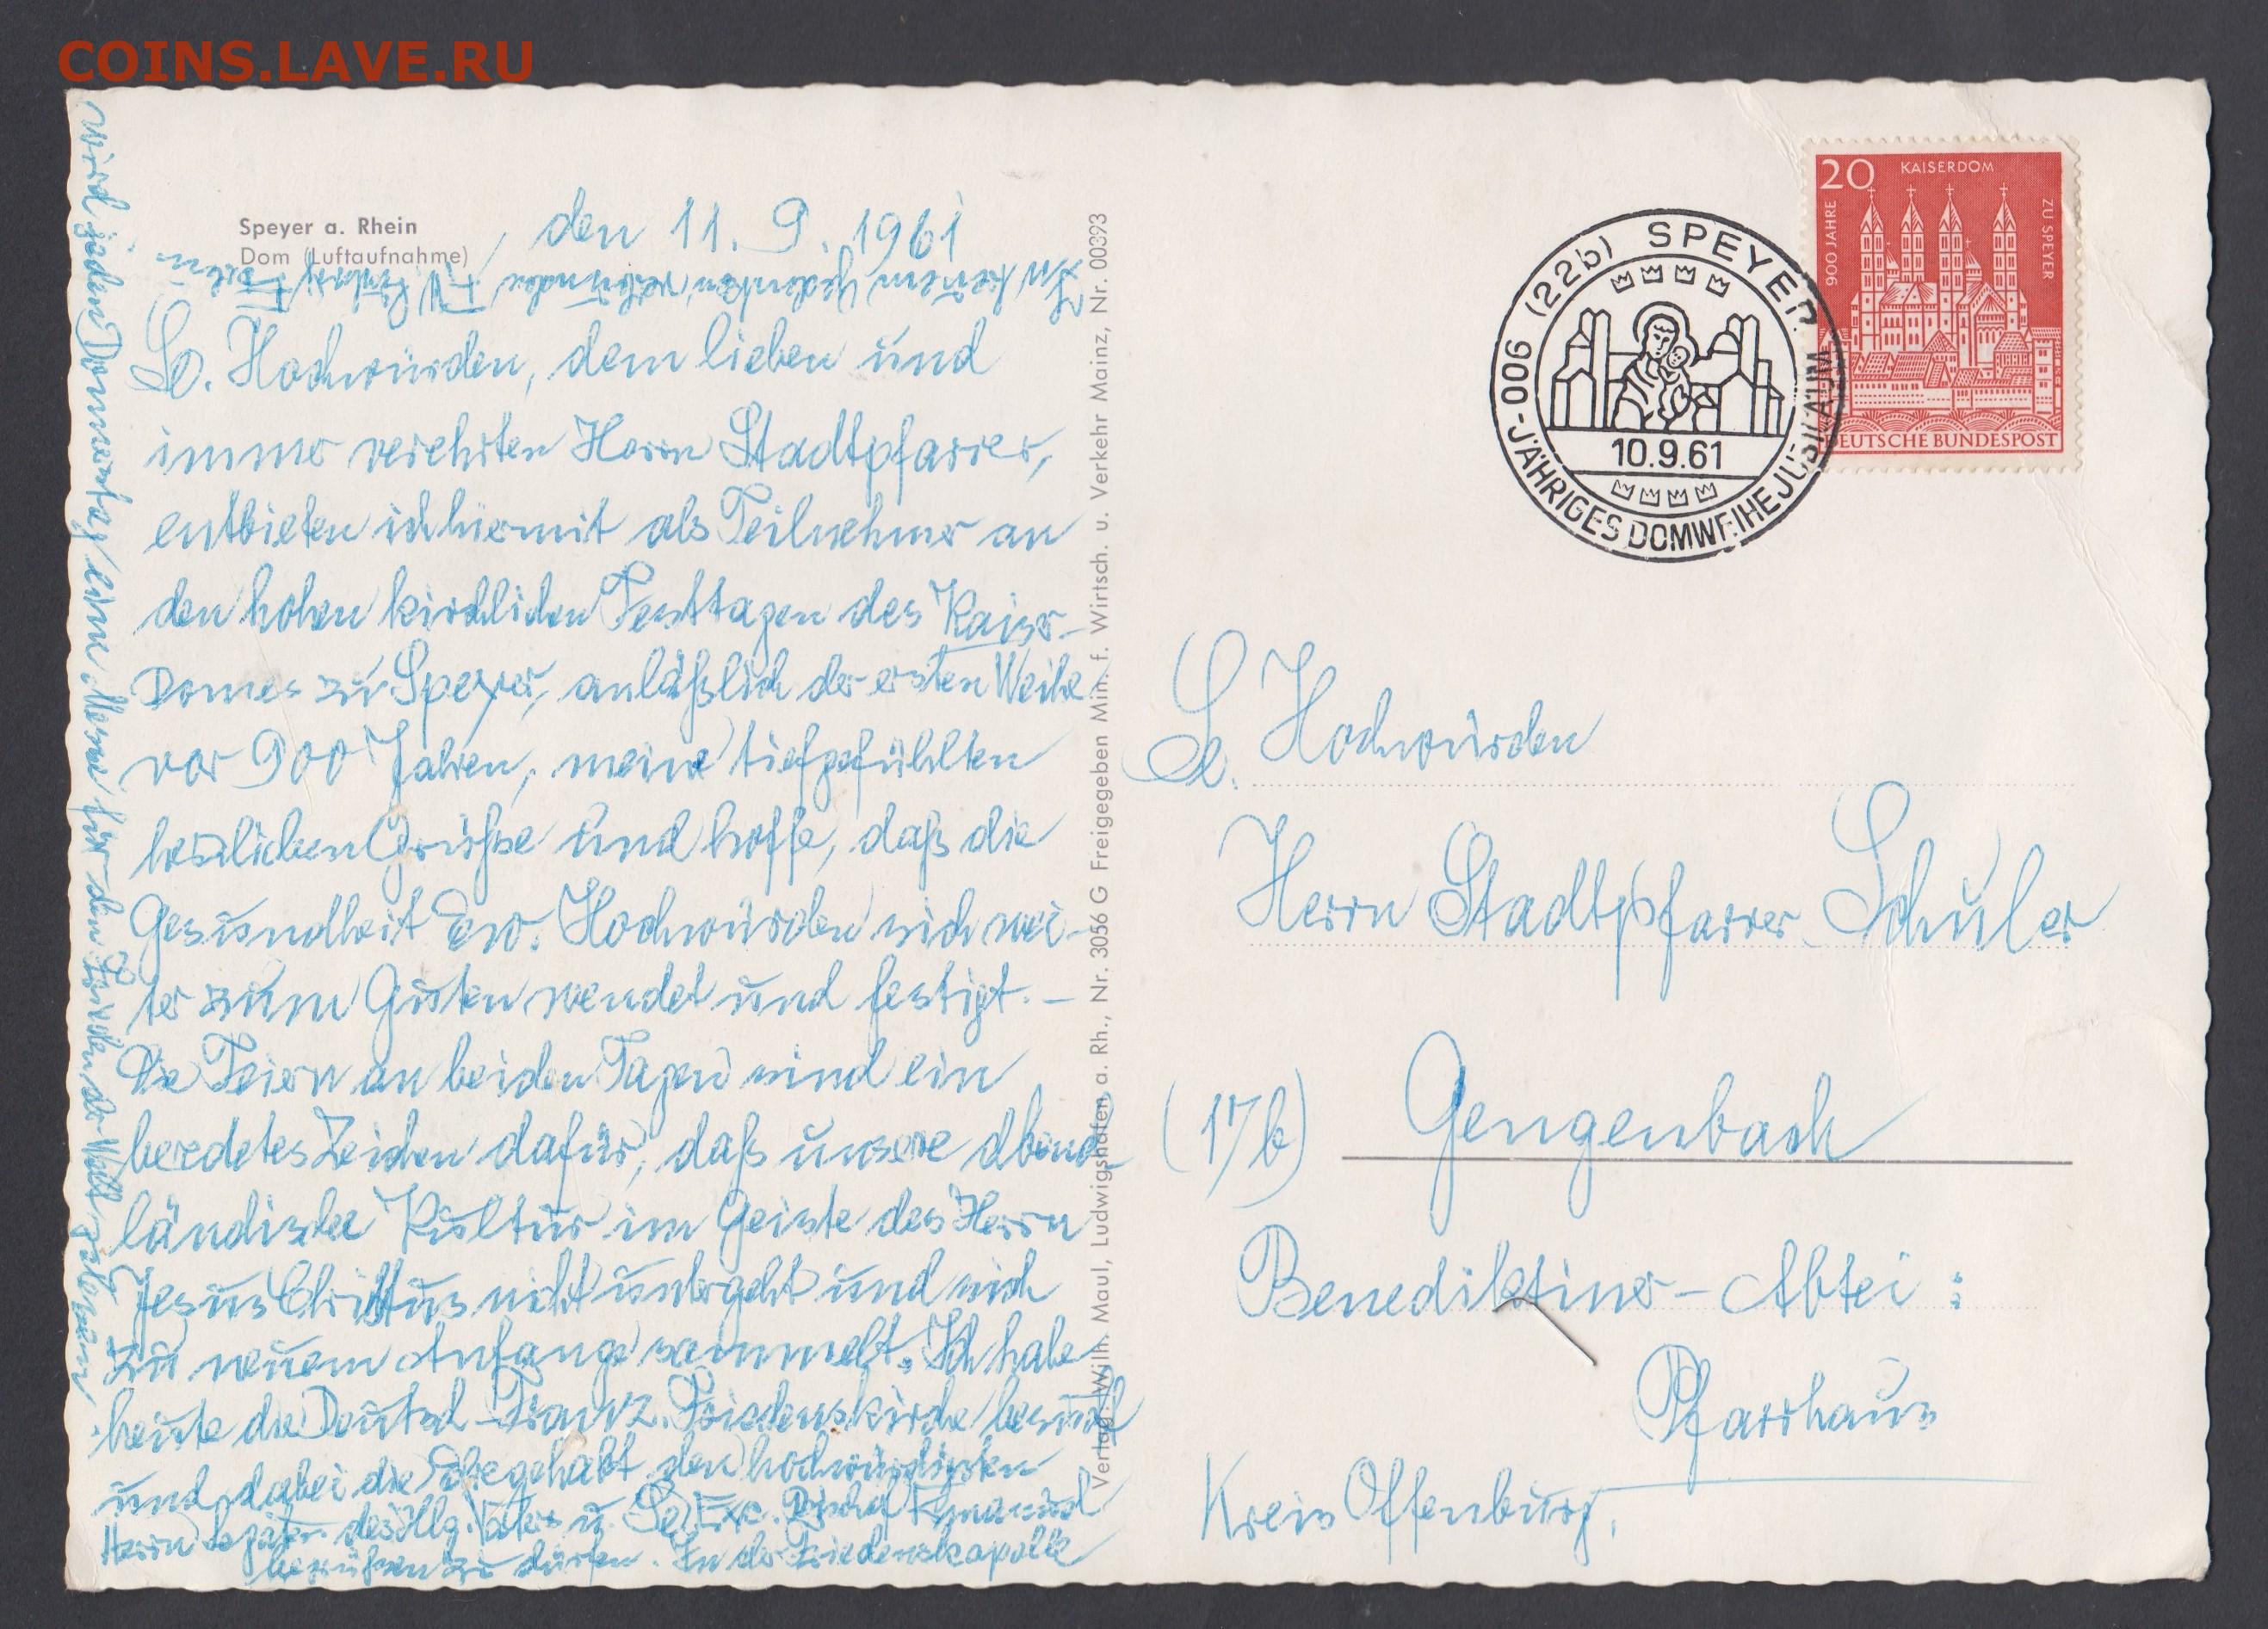 COINS.LAVE.RU
Speyer a. Rhein
Dom (Luftaufnahme)
, den 11. 9. 1961
Se. Hochwürden, dem lieben und
immer verehrten Herrn Stadtpfarrer,
entbieten ich hiermit als Teilnehmer an
den hohen kirchlichen Festtagen des Kaiser-
Domes zu Speyer, anläßlich der ersten Weihe
vor 900 Jahren, meine tiefgefühlten
herzlichen Grüße und hoffe, daß die
Gesundheit Ew. Hochwürden sich wei-
ter zum Guten wendet und festigt. –
Die Feiern an beiden Tagen sind ein
beredetes Zeichen dafür, daß unsere abend-
ländische Kultur im Geiste des Herrn
Jesus Christus nicht untergeht und sich
zu neuem Anfange sammelt. Ich habe
heute die Deutsch-Franz. Friedenskirche besucht
und dabei die Ehre gehabt den hochwürdigsten
Herrn des Hlg. Vaters u. Se. Exc. Bischof Emanuel
begrüßen zu dürfen. In der Friedenskapelle
wird jeden Donnerstag eine Messe für den Frieden der Welt gelesen.
In treuem Gedenken, verbunden
Verlag Wilh. Maul, Ludwigshafen a. Rh., Nr. 3056 G Freigegeben Min. f. Wirtsch. u. Verkehr Mainz, Nr. 00393
(22b) SPEYER
10.9.61
900-JÄHRIGES DOMWEIHEJUBILÄUM
20
KAISERDOM
900 JAHRE
ZU SPEYER
DEUTSCHE BUNDESPOST
Se. Hochwürden
Herrn Stadtpfarrer Schuler
(17b) Gengenbach
Benediktiner-Abtei:
Pfarrhaus
Kreis Offenburg.